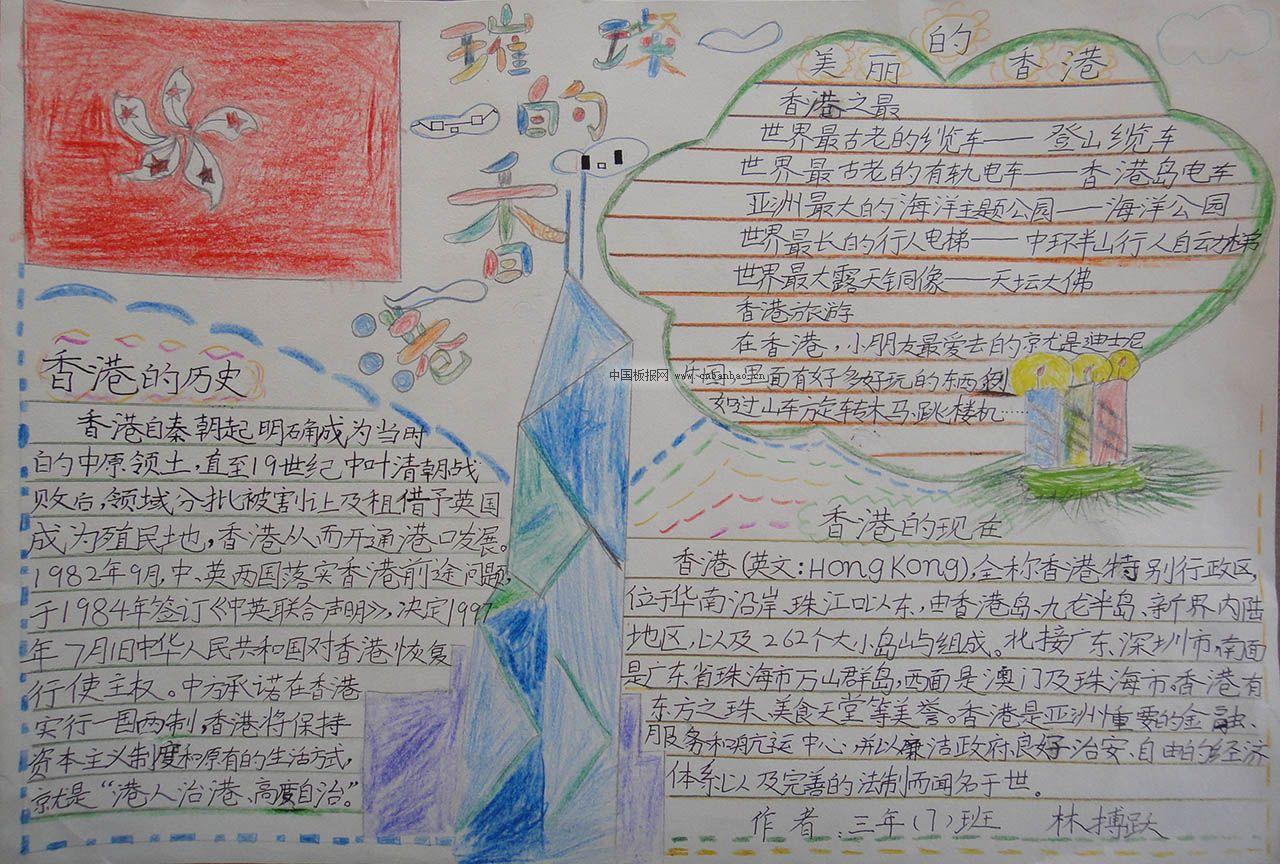 璀璨
的
香
港
美丽的香港
香港之最
世界最古老的缆车——登山缆车
世界最古老的有轨电车——香港岛电车
亚洲最大的海洋主题公园——海洋公园
世界最长的行人电梯——中环半山行人自动梯
世界最大露天铜像——天坛大佛
香港旅游
在香港，小朋友最爱去的就是迪士尼
乐园，里面有好多好玩的东西例
如过山车旋转木马、跳楼机……
中国板报网 www.cnbanbao.cn
香港的历史
香港自秦朝起明确成为当时
的中原领土，直至19世纪中叶清朝战
败后，领域分批被割让及租借予英国
成为殖民地，香港从而开通港口发展。
1982年9月，中、英两国落实香港前途问题，
于1984年签订《中英联合声明》，决定1997
年7月1日中华人民共和国对香港恢复
行使主权。中方承诺在香港
实行一国两制，香港将保持
资本主义制度和原有的生活方式，
就是“港人治港、高度自治。”
香港的现在
香港(英文：Hong Kong)，全称香港特别行政区，
位于华南沿岸、珠江口以东，由香港岛、九龙半岛、新界内陆
地区，以及262个大小岛屿组成。北接广东、深圳市，南面
是广东省珠海市万山群岛，西面是澳门及珠海市。香港有
东方之珠、美食天堂等美誉。香港是亚洲重要的金融、
服务和航运中心，并以廉洁政府、良好治安、自由的经济
体系以及完善的法制而闻名于世。
作者：三年(7)班 林搏跃